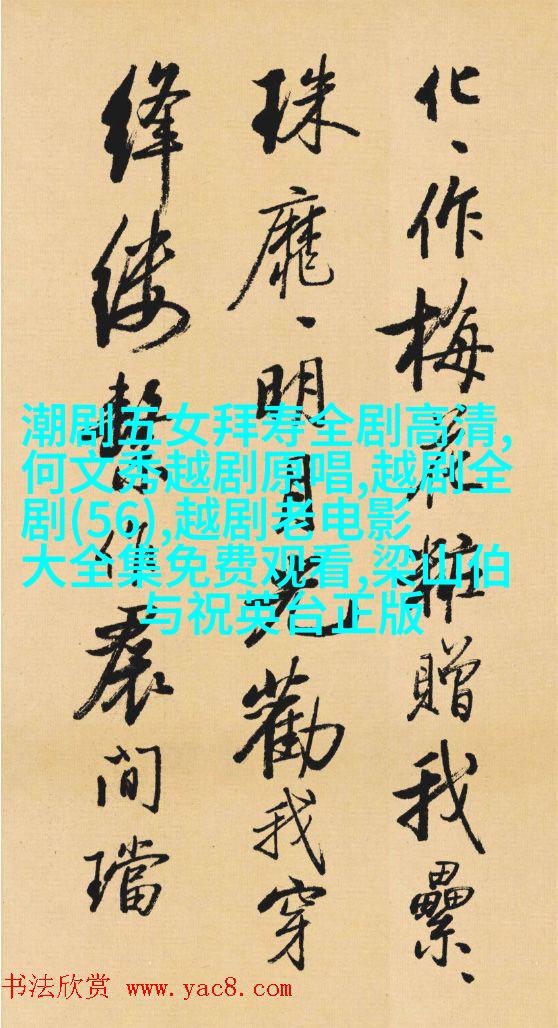 化、作梅花粧贈我纍、
珠靡、明月光勸我穿
絳縷繫作裠間璫
潮剧五女拜寿全剧高清,
何文秀越剧原唱,越剧全
剧(56),越剧老电影
大全集免费观看,梁山伯
与祝英台正版
书法欣赏 www.yac8.com